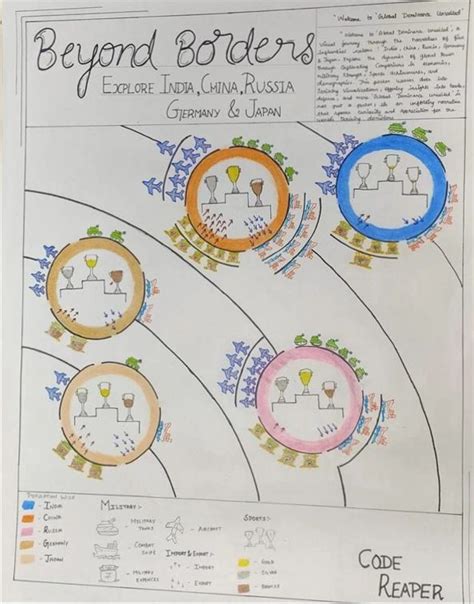 Beyond Borders
Explore India, China, Russia
Germany & Japan
"Welcome to 'Global Dominance Unveiled'"
"Welcome to 'Global Dominance Unveiled', a
visual journey through the narratives of five
influential nations: India, China, Russia, Germany
& Japan. Explore the dynamics of global Power
through captivating Comparisons in economic,
military strength, Sports Achievements, and
demographics. This poster
Visualizations, offering insights into trade,
and more. 'Global Dominance Unveiled' is
not just a poster; its an
that sparks curiosity and appreciation for the
Population wise
- India
- China
- Russia
- Germany
- Japan
Military :-
- Military Tanks
- Combat Ships
- Military Expenses
- Aircraft
Import & Export :-
- Import
- Export
Sports :-
- Gold
- Silver
- Bronze
Code
Reaper